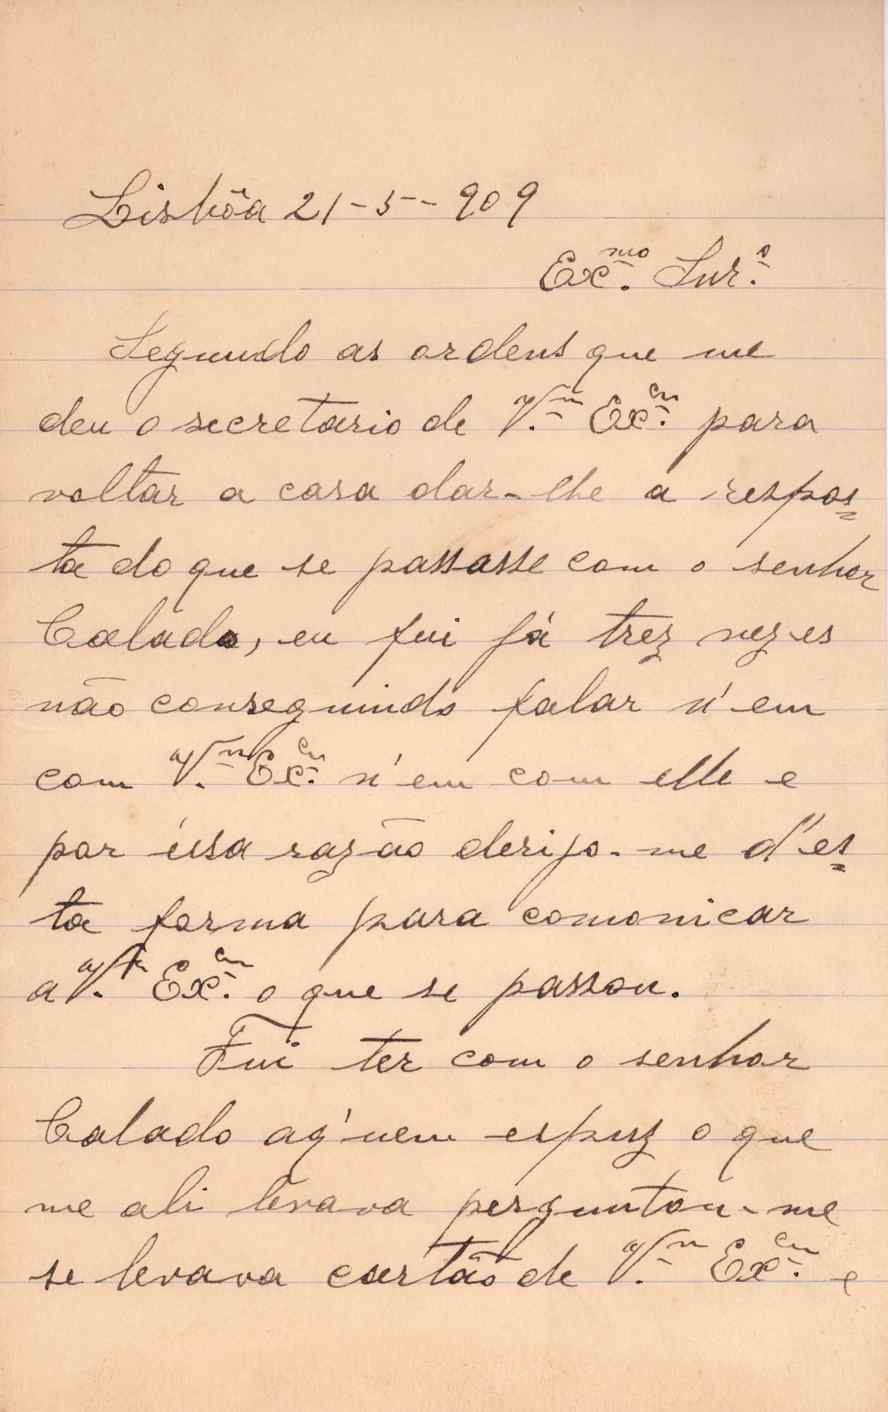 Lisbôa 21-5-909
Ex.mo Snr.o
Segundo as ordens que me
deu o secretario de V.a Ex.ca para
voltar a casa dar-lhe a respos=
ta do que se passasse com o senhor
Calado, eu fui já trez vezes
não conseguindo falar n'em
com V.a Ex.ca n'em com elle e
por éssa razão derijo-me d'es=
ta forma para comonicar
a V.a Ex.ca o que se passou.
Fui ter com o senhor
Calado aq'uem espuz o que
me ali levava perguntou-me
se levava cartão de V.a Ex.ca e